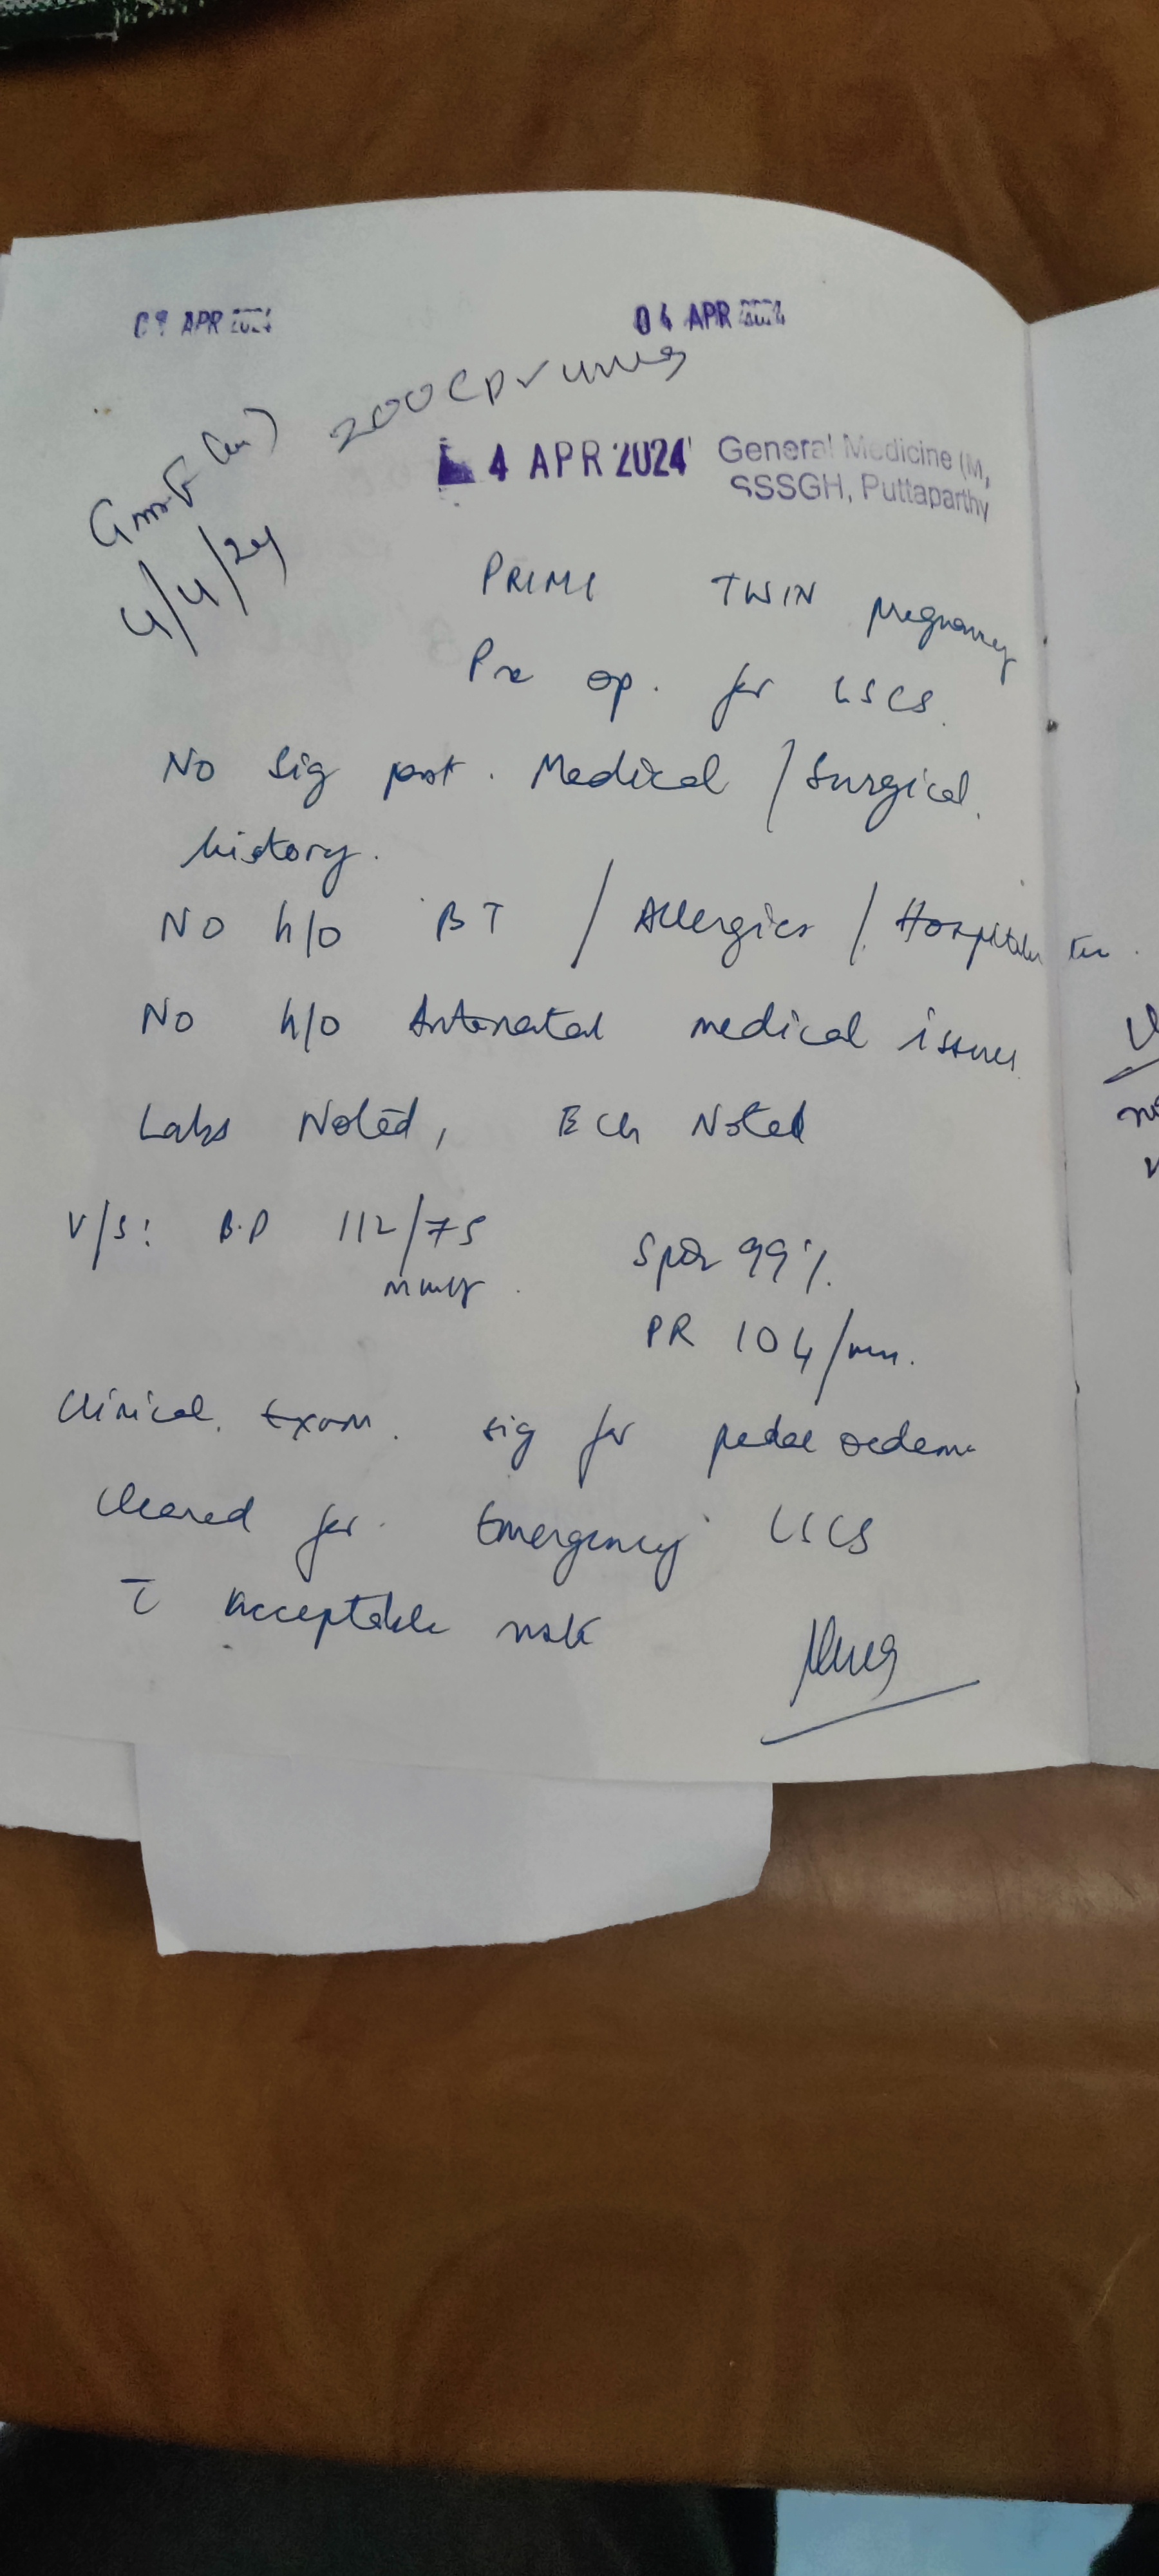 APR 04 APR
4 APR 2024 General Medicine (M,
SSSGH, Puttaparthy
4/4/24
PRIMI TWIN pregnancy
Pre op. for LSCS.
No sig past. Medical / Surgical.
history.
NO h/o BT / Allergies /
No h/o Antenatal medical issues
Labs Noted, ECG Noted
V/S: B.P 112/75
mmHg.
SpO2 99%.
PR 104/min.
Clinical. Exam. sig for pedal oedema
Cleared for. Emergency LSCS
c̄ acceptable risk